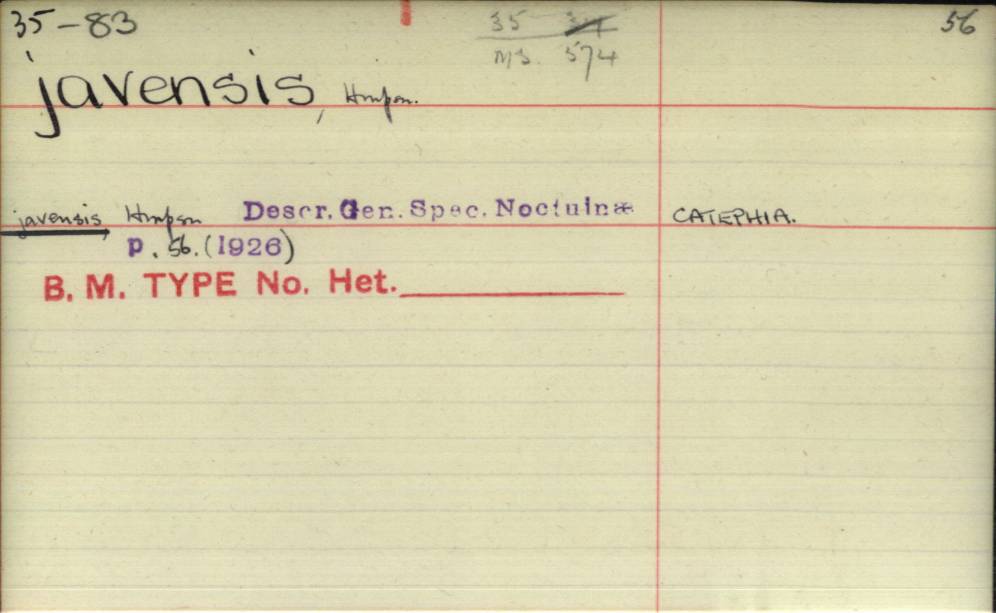 35-83
35
56
MS. 574
javensis, Hmpsn.
javensis, Hmpsn Descr. Gen. Spec. Noctuinæ CATEPHIA.
p. 56. (1926)
B. M. TYPE No. Het.